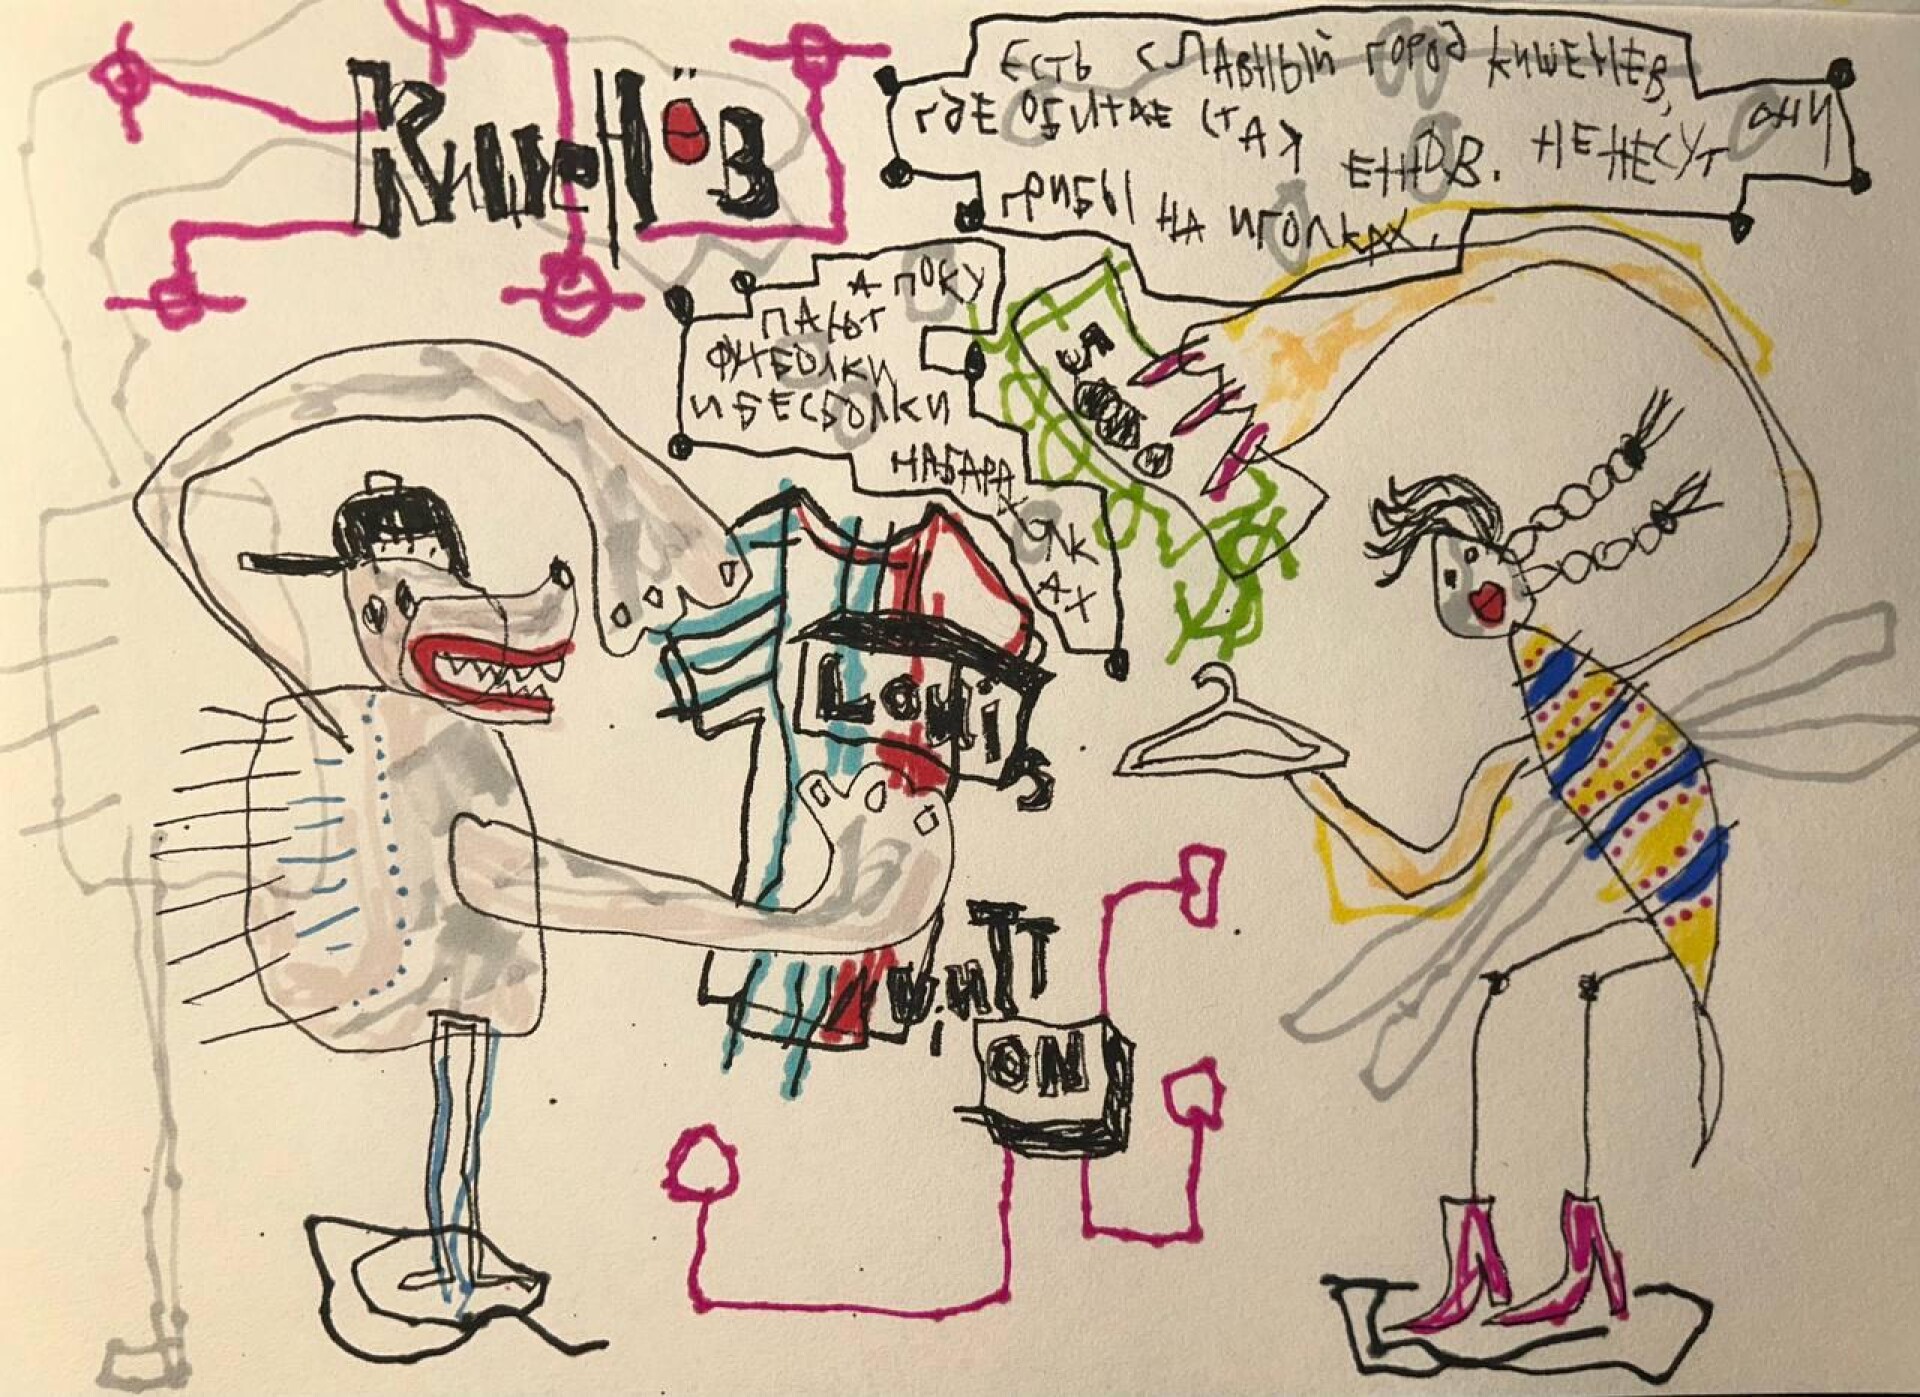 КишеНёв
ЕСТЬ СЛАВНЫЙ ГОРОД КИШЕНЕВ,
ГДЕ ОБИТАЕ СТАЯ ЕЖОВ. НЕ НЕСУТ ОНИ
ГРИБЫ НА ИГОЛКАХ,
А ПОКУ
ПАЮТ
ФУТБОЛКИ
И БЕСБОЛКИ
НАБАРА
ХОЛК
АХ
LOUiS
ON